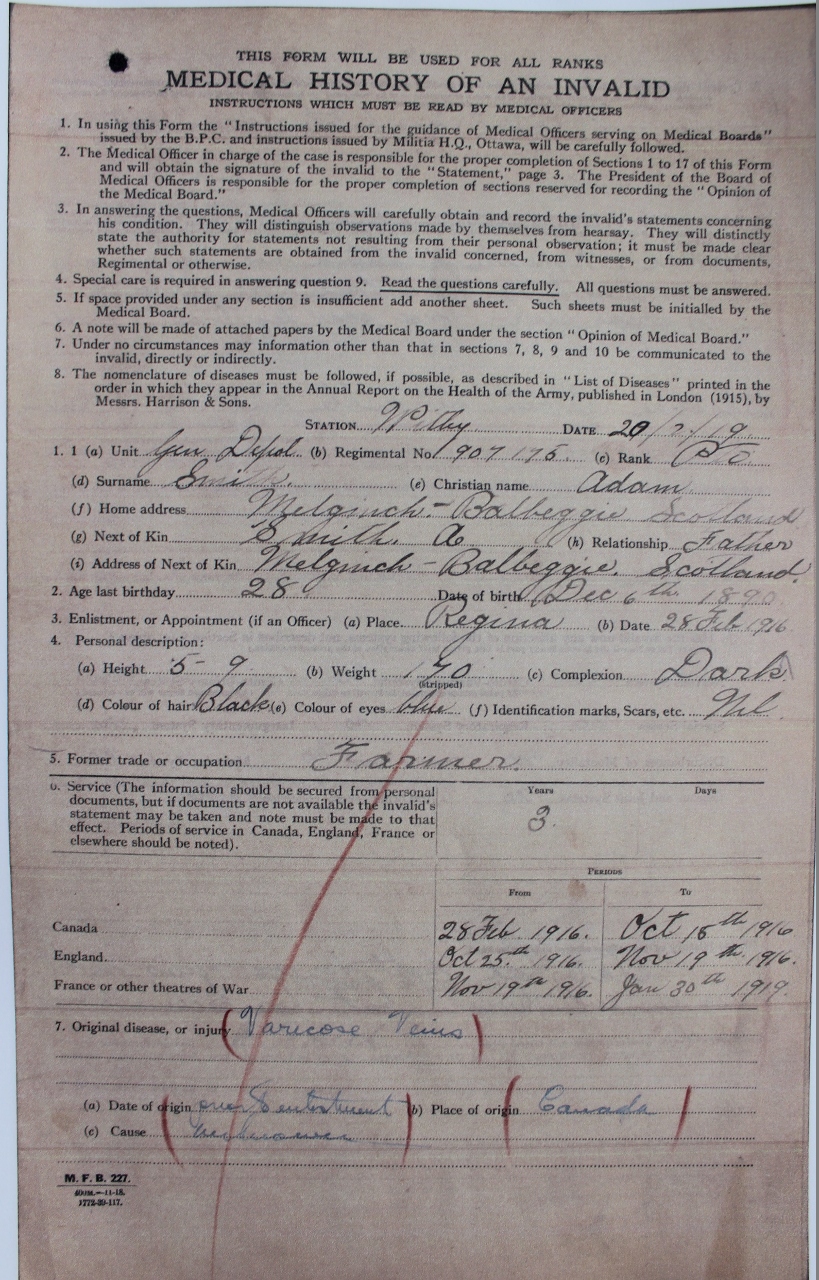 THIS FORM WILL BE USED FOR ALL RANKS
MEDICAL HISTORY OF AN INVALID
INSTRUCTIONS WHICH MUST BE READ BY MEDICAL OFFICERS
1. In using this Form the "Instructions issued for the guidance of Medical Officers serving on Medical Boards"
issued by the B.P.C. and instructions issued by Militia H.Q., Ottawa, will be carefully followed.
2. The Medical Officer in charge of the case is responsible for the proper completion of Sections 1 to 17 of this Form
and will obtain the signature of the invalid to the "Statement," page 3. The President of the Board of
Medical Officers is responsible for the proper completion of sections reserved for recording the "Opinion of
the Medical Board."
3. In answering the questions, Medical Officers will carefully obtain and record the invalid's statements concerning
his condition. They will distinguish observations made by themselves from hearsay. They will distinctly
state the authority for statements not resulting from their personal observation; it must be made clear
whether such statements are obtained from the invalid concerned, from witnesses, or from documents,
Regimental or otherwise.
4. Special care is required in answering question 9. Read the questions carefully. All questions must be answered.
5. If space provided under any section is insufficient add another sheet. Such sheets must be initialled by the
Medical Board.
6. A note will be made of attached papers by the Medical Board under the section "Opinion of Medical Board."
7. Under no circumstances may information other than that in sections 7, 8, 9 and 10 be communicated to the
invalid, directly or indirectly.
8. The nomenclature of diseases must be followed, if possible, as described in "List of Diseases" printed in the
order in which they appear in the Annual Report on the Health of the Army, published in London (1915), by
Messrs. Harrison & Sons.
STATION Witley DATE 20/2/19
1. 1 (a) Unit Gen Depot (b) Regimental No 907175 (c) Rank Pte
(d) Surname Smith (e) Christian name Adam
(f) Home address Melginch - Balbeggie Scotland
(g) Next of Kin Smith. A (h) Relationship Father
(i) Address of Next of Kin Melginch - Balbeggie. Scotland.
2. Age last birthday 28 Date of birth Dec 6th 1890
3. Enlistment, or Appointment (if an Officer) (a) Place Regina (b) Date 28 Feb 1916
4. Personal description:
(a) Height 5-9 (b) Weight 170 (c) Complexion Dark
(stripped)
(d) Colour of hair Black (e) Colour of eyes blue (f) Identification marks, Scars, etc. Nil
5. Former trade or occupation Farmer.
6. Service (The information should be secured from personal
documents, but if documents are not available the invalid's
statement may be taken and note must be made to that
effect. Periods of service in Canada, England, France or
elsewhere should be noted).
Years Days
3.
PERIODS
From To
Canada 28 Feb 1916. Oct 18th 1916
England Oct 25th 1916. Nov 19th 1916.
France or other theatres of War Nov 19th 1916. Jan 30th 1919.
7. Original disease, or injury Varicose Veins
(a) Date of origin enlistment (b) Place of origin Canada
(c) Cause
M. F. B. 227.
400M.—11-18.
1772-39-117.